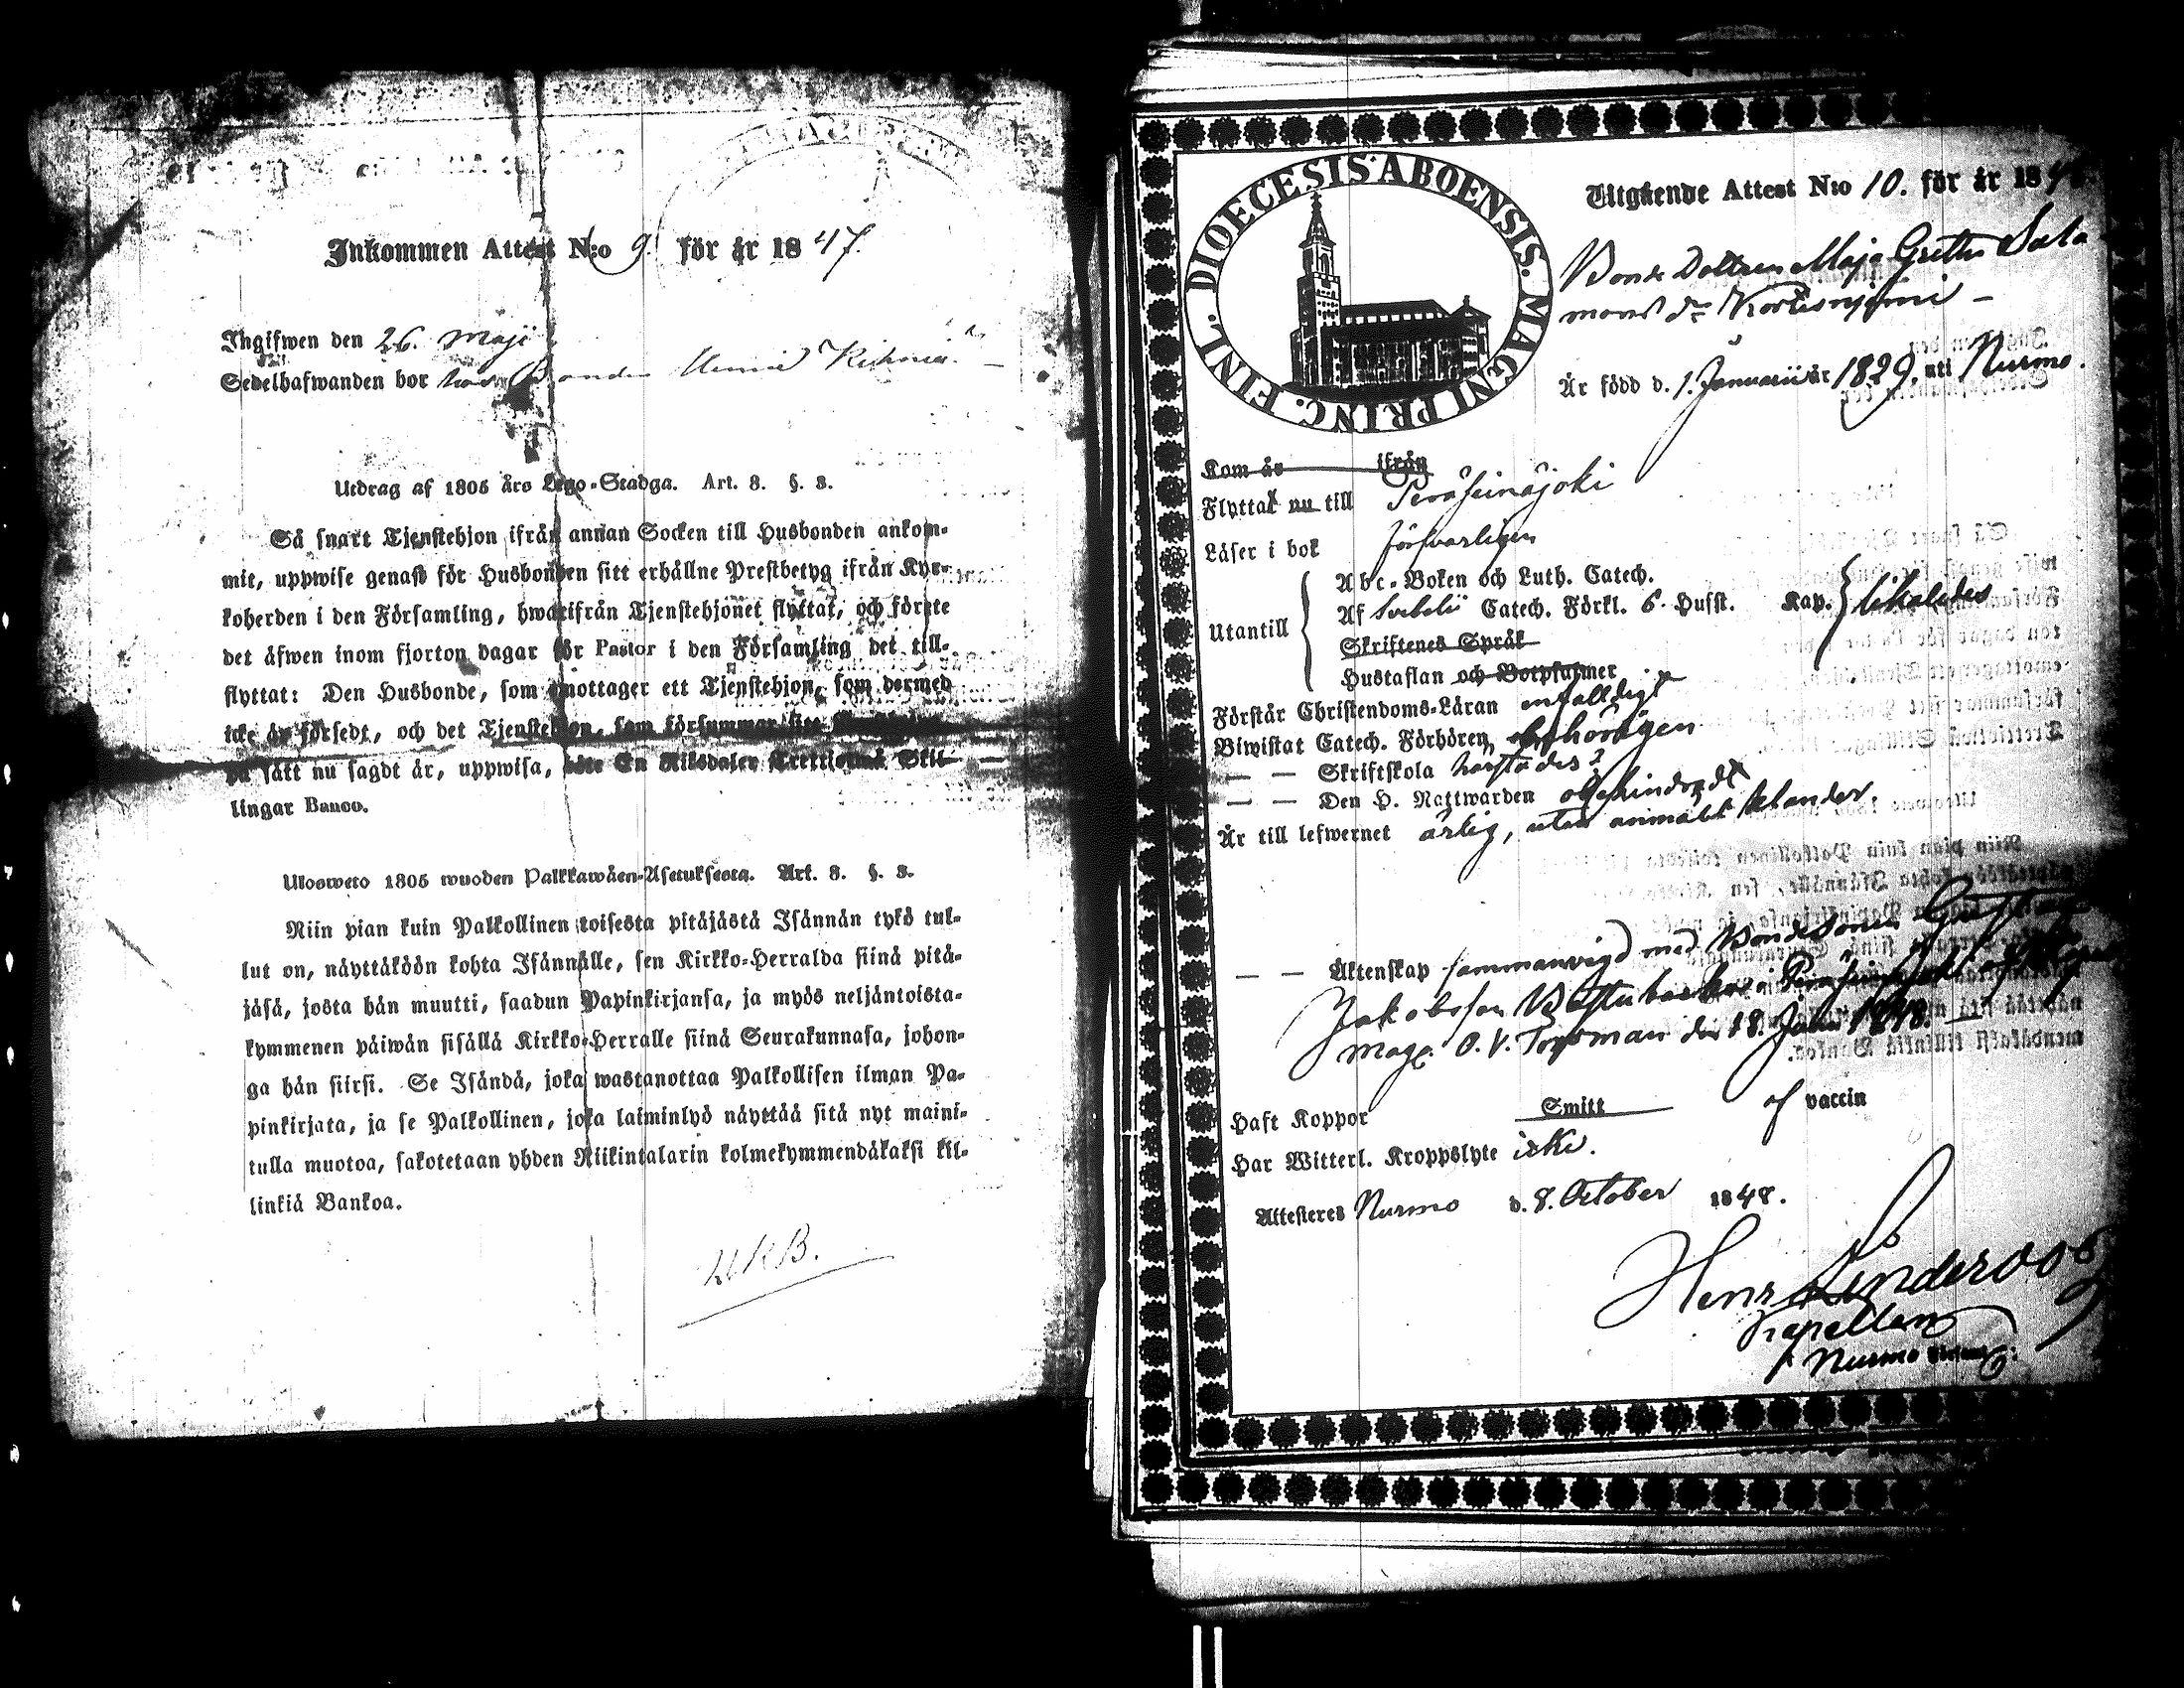 Inkommen Attest N:o 9. för år 1847.
Ingifwen den 26. Maji
Sedelhafwanden bor hos Bonden
Utdrag af 1805 års Lego-Stadga. Art. 8. §. 3.
Så snart Tjenstehjon ifrån annan Socken till Husbonden ankom-
mit, uppwise genast för Husbonden sitt erhållne Prestbetyg ifrån Kyr-
koherden i den Församling, hwarifrån Tjenstehjonet flyttat, och förete
det åfwen inom fjorton dagar för Pastor i den Församling det till-
flyttat: Den Husbonde, som emottager ett Tjenstehjon, som dermed
icke är försedt, och det Tjenstehjon, som försummar
på sätt nu sagdt är, uppwisa, böte En Riksdaler Trettiotwå Skil-
lingar Banco.
Ulosweto 1805 wuoden Palkkawäen-Asetuksesta. Art. 8. §. 3.
Niin pian kuin Palkollinen toisesta pitäjästä Isännän tykö tul-
lut on, näyttäköön kohta Isännälle, sen Kirkko-Herralda siinä pitä-
jäsä, josta hän muutti, saadun Papinkirjansa, ja myös neljäntoista-
kymmenen päiwän sisällä Kirkko-Herralle siinä Seurakunnasa, johon-
ga hän siirsi. Se Isändä, joka wastanottaa Palkollisen ilman Pa-
pinkirjata, ja se Palkollinen, joka laiminlyö näyttää sitä nyt maini-
tulla muotoa, sakotetaan yhden Riikintalarin kolmekymmendäkaksi kil-
linkiä Bankoa.
DIOECESIS ABOENSIS. MAGNI PRINC. FINL.
Utgående Attest N:o 10. för år 184
Bonde Dottren Maja Greta Salo
mons dr
Är född d. 1. Januarii år 1829, uti Nurmo.
Kom år ifrån
Flyttat nu till Peräseinäjoki
Läser i bok försvarligen
Utantill
Abc-Boken och Luth. Catech.
Af Catech. Förkl. 6. Hufst. Kap. likaledes
Skriftenes Språk
Hustaflan och Botpsalmer
Förstår Christendoms-Läran enfalldigt
Biwistat Catech. Förhören behörigen
— — Skriftskola
— — Den H. Nattwarden obehindradt
Är till lefwernet ärlig, utan anmäldt klander.
— — Äktenskap sammanvigd med Bondesonen Gustaf
Jakobsson i Peräseinäjoki af
Mag. O. V. Forsman den 18. Juni 1848.
Haft Koppor Smitt af vaccin
Har Witterl. Kroppslyte icke.
Attesteres Nurmo d. 8. October 1848.
Henr
Kapellan
Nurmo